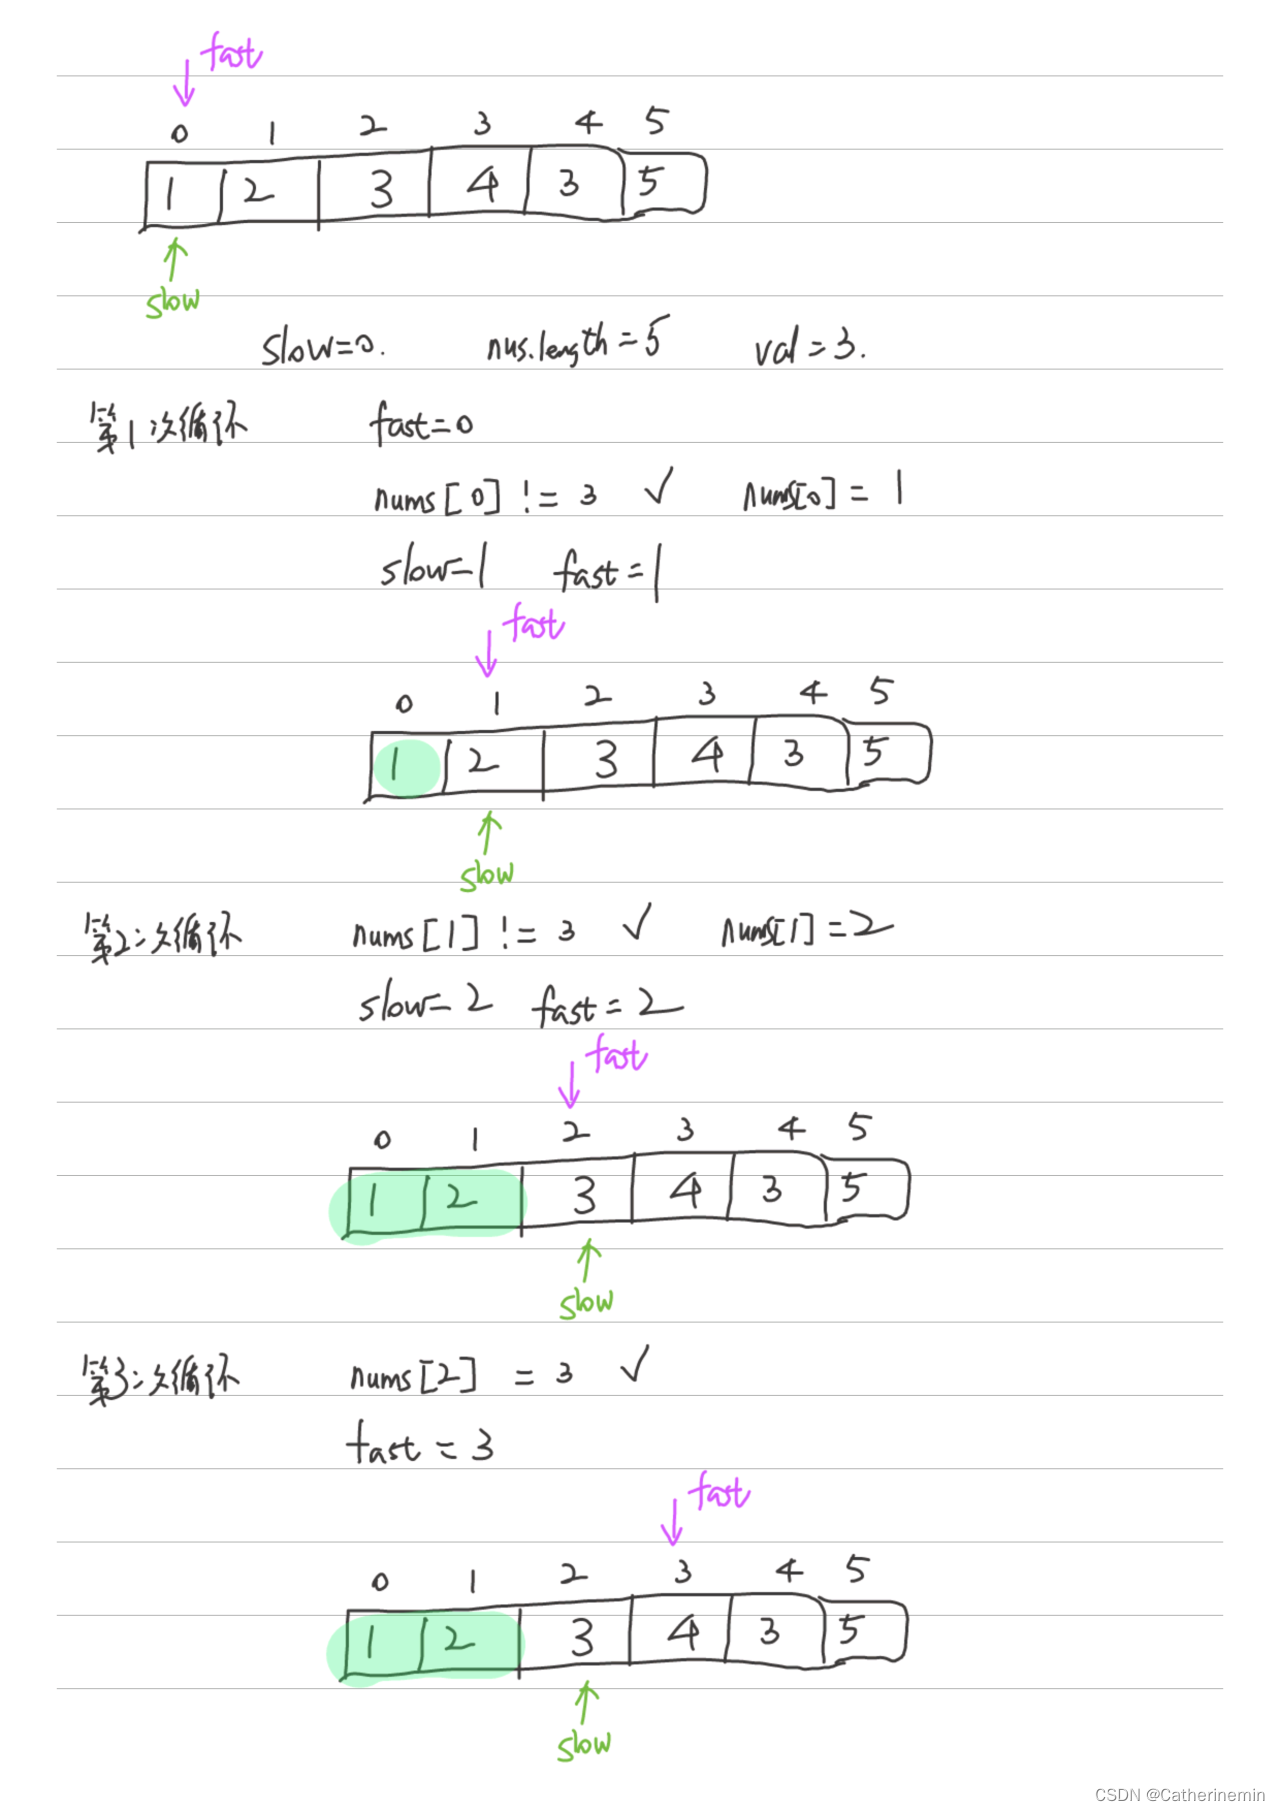 fast
0 1 2 3 4 5
1 2 3 4 3 5
slow
slow=0. nus.length=5 val=3.
第1次循环 fast=0
nums[0] != 3 ✓ nums[0] = 1
slow=1 fast=1
fast
0 1 2 3 4 5
1 2 3 4 3 5
slow
第2次循环 nums[1] != 3 ✓ nums[1]=2
slow=2 fast=2
fast
0 1 2 3 4 5
1 2 3 4 3 5
slow
第3次循环 nums[2] = 3 ✓
fast = 3
fast
0 1 2 3 4 5
1 2 3 4 3 5
slow
CSDN @Catherinemin